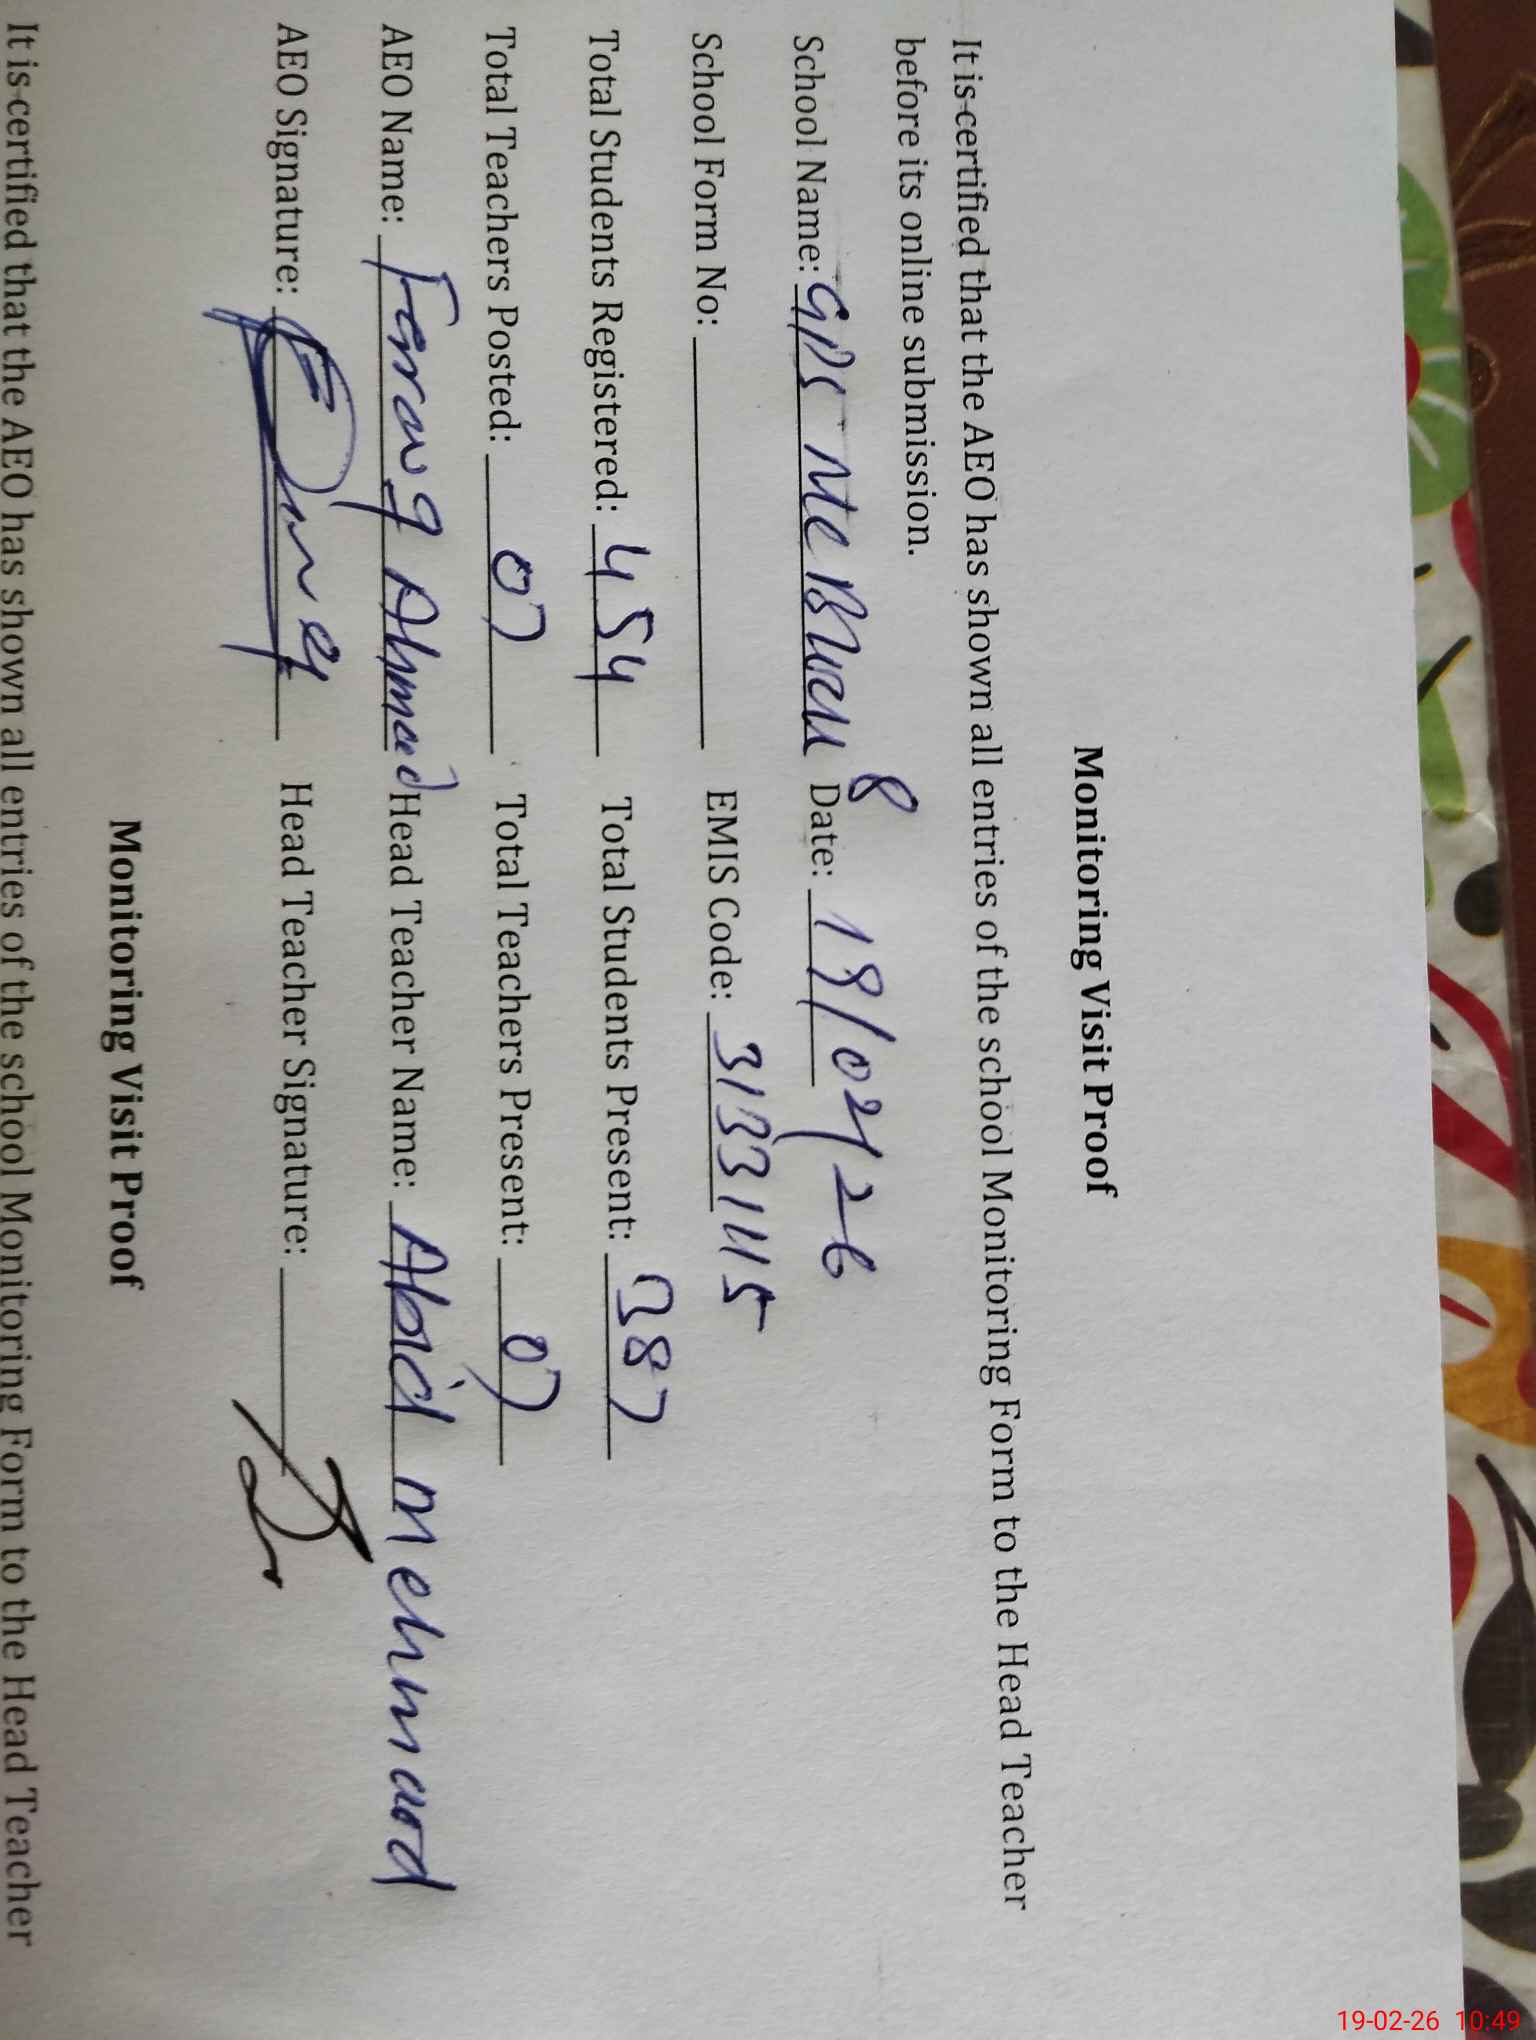 Monitoring Visit Proof
It is certified that the AEO has shown all entries of the school Monitoring Form to the Head Teacher
before its online submission.
School Name: GPS MC 8 Date: 19/02/26
School Form No: EMIS Code: 31331115
Total Students Registered: 454 Total Students Present: 387
Total Teachers Posted: 07 Total Teachers Present: 07
AEO Name: Farooq Ahmad Head Teacher Name: Abid mehmood
AEO Signature: Head Teacher Signature:
Monitoring Visit Proof
It is certified that the AEO has shown all entries of the school Monitoring Form to the Head Teacher
19-02-26 10:49